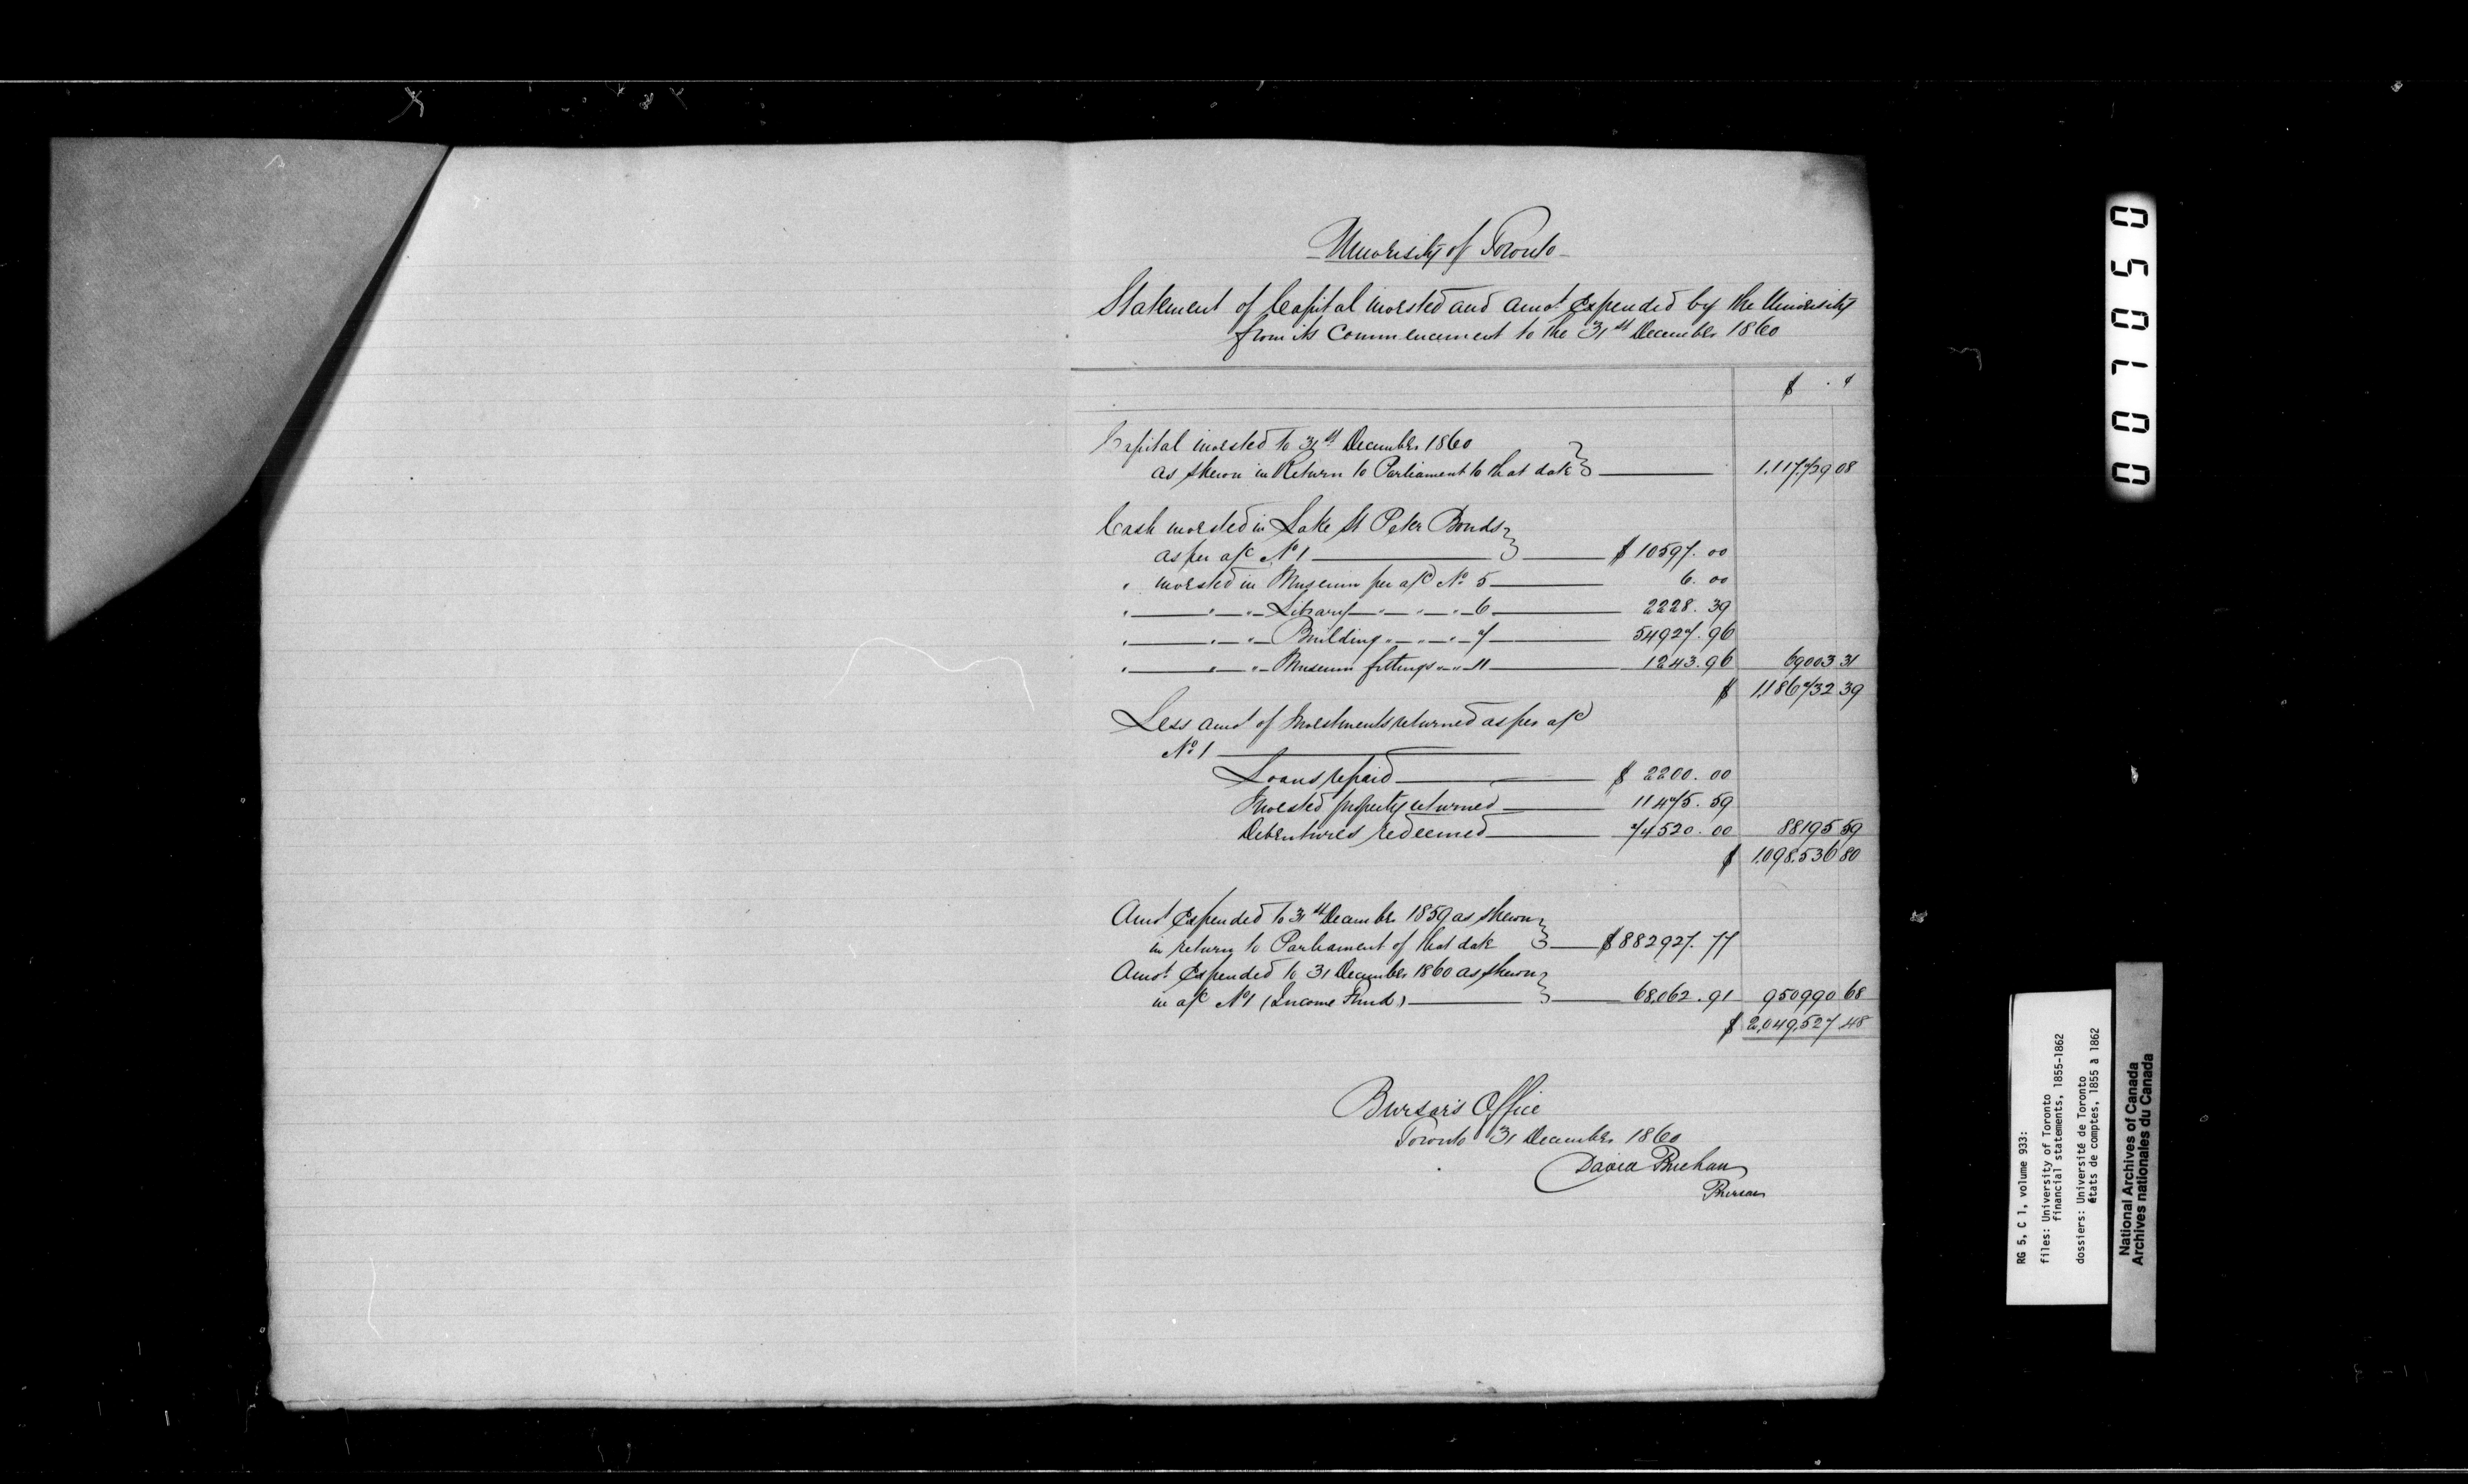 University of Toronto
Statement of Capital invested and amot Expended by the University
from its Commencement to the 31st December 1860
$ . ¢
Capital invested to 31st December 1860
as shewn in Return to Parliament to that date } 1,117,729 08
Cash invested in Lake St Peter Bonds
as per a/c No 1 } $ 10597. 00
" invested in Museum per a/c No 5 6. 00
" " " Library " " " 6 2228. 39
" " " Building " " " 7 54927. 96
" " " Museum fittings " " 11 1243. 96 69003 31
$ 1,186732 39
Less amot of Investments returned as per a/c
No 1
Loans repaid $ 2200. 00
Invested property returned 11475. 59
Debentures redeemed 74520. 00 88195 59
$ 1,098,536 80
Amot Expended to 31st December 1859 as shewn
in return to Parliament of that date } $ 882927. 77
Amot Expended to 31 December 1860 as shewn
in a/c No 1 (Income Fund) } 68,062. 91 950990 68
$ 2,049,527 48
Bursar's Office
Toronto 31 December 1860
David Buchan
Bursar
007050
RG 5, C 1, volume 933:
files: University of Toronto
financial statements, 1855-1862
dossiers: Université de Toronto
états de comptes, 1855 à 1862
National Archives of Canada
Archives nationales du Canada